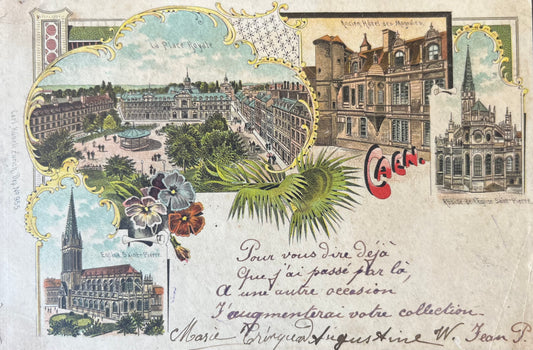 La Place Royale
Ancien Hôtel des Monnaies
Caen.
Abside de l'Eglise Saint-Pierre
Eglise Saint-Pierre
Pour vous dire déjà
Que j'ai passé par là,
A une autre occasion
J'augmenterai votre collection.
Marie Augustine W. Jean P.